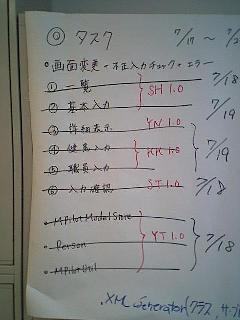 ◎ タスク 7/17 ~ 7/2
・画面変更・不正入力チェック・エラー
① 一覧 SH 1.0 7/18
② 基本入力 7/19
③ 詳細表示 YN 1.0
④ 健康入力 KK 1.0 7/19
⑤ 職員入力
⑥ 入力確認 ST 1.0 7/18
・MPilotModelSave
・Person YT 1.0 7/18
・MPilotUtil
XMLGeneratorクラス